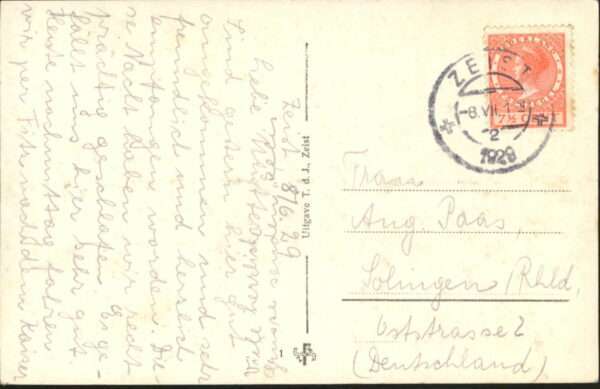 Zeist 8/6 29
Liebe
Sind gestern hier gut
angekommen und sehr
freundlich und herzlich
empfangen worden. Die
se Nacht haben wir recht
prächtig geschlafen. Es ge-
fällt uns hier sehr gut
Heute nachmittag fahren
wir per nach dem Kaiser
Uitgave T. d. J., Zeist
1
NEDERLAND
7½ C
ZEIST
8.VII.1
2
1929
Frau
Aug. Paas,
Solingen /Rhld,
Oststrasse 2
(Deutschland)